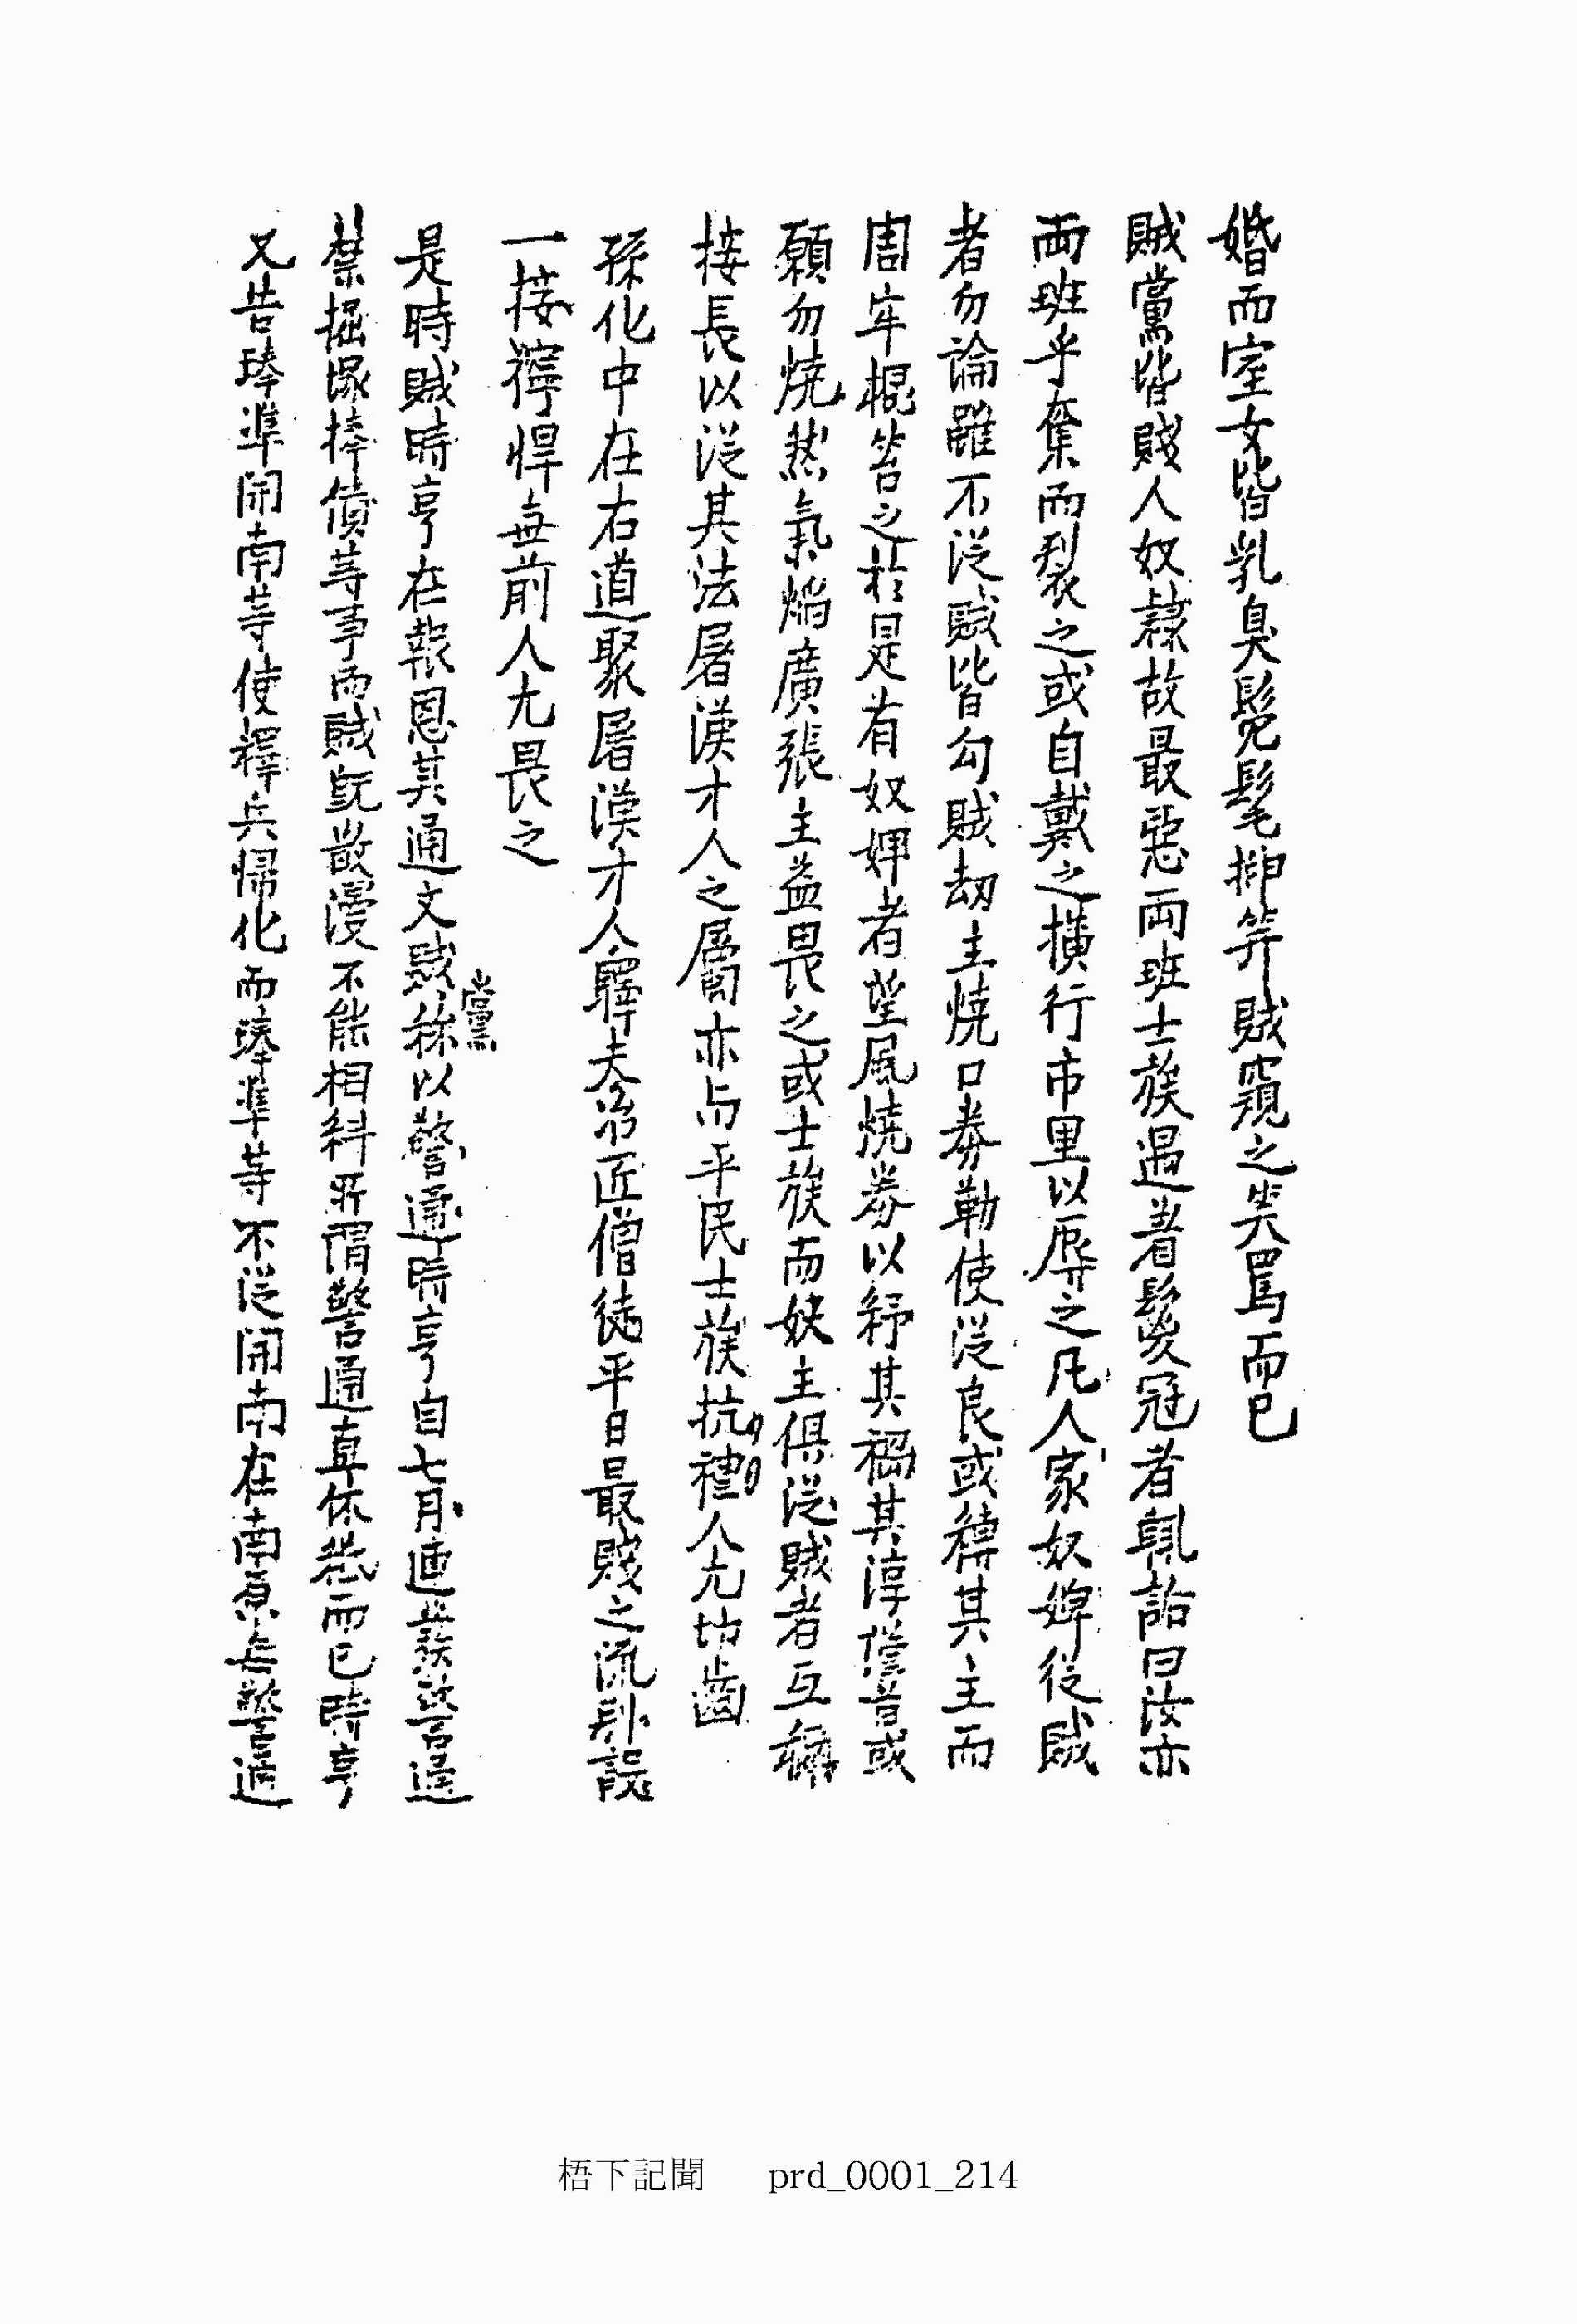 婚而室女皆乳臭髡髦揷笄賊窺之笑罵而已
賊黨皆賤人奴隸故最惡兩班士族遇着鬉冠者輒詬曰汝亦
兩班乎奪而裂之或自戴之橫行市里以辱之凡人家奴婢從賊
者勿論雖不從賊皆勾賊劫主燒口券勒使從良或縛其主而
周牢棍笞之於是有奴婢者望風燒券以紓其禍其淳僅者或
願勿燒然氣焰廣張主益畏之或士族而奴主俱從賊者互稱
接長以從其法屠漢才人之屬亦与平民士族抗禮人尤切齒
孫化中在右道聚屠漢才人驛夫冶匠僧徒平日最賤之流別設
一接獰悍無前人尤畏之
是時賊時亨在報恩其通文賊黨称以警通時亨自七月連發警通
禁掘塚捧債等事而賊旣散漫不能相糾所謂警通直休紙而已時亨
又告琫準開南等使釋兵帰化而琫準等不從開南在南原与警通